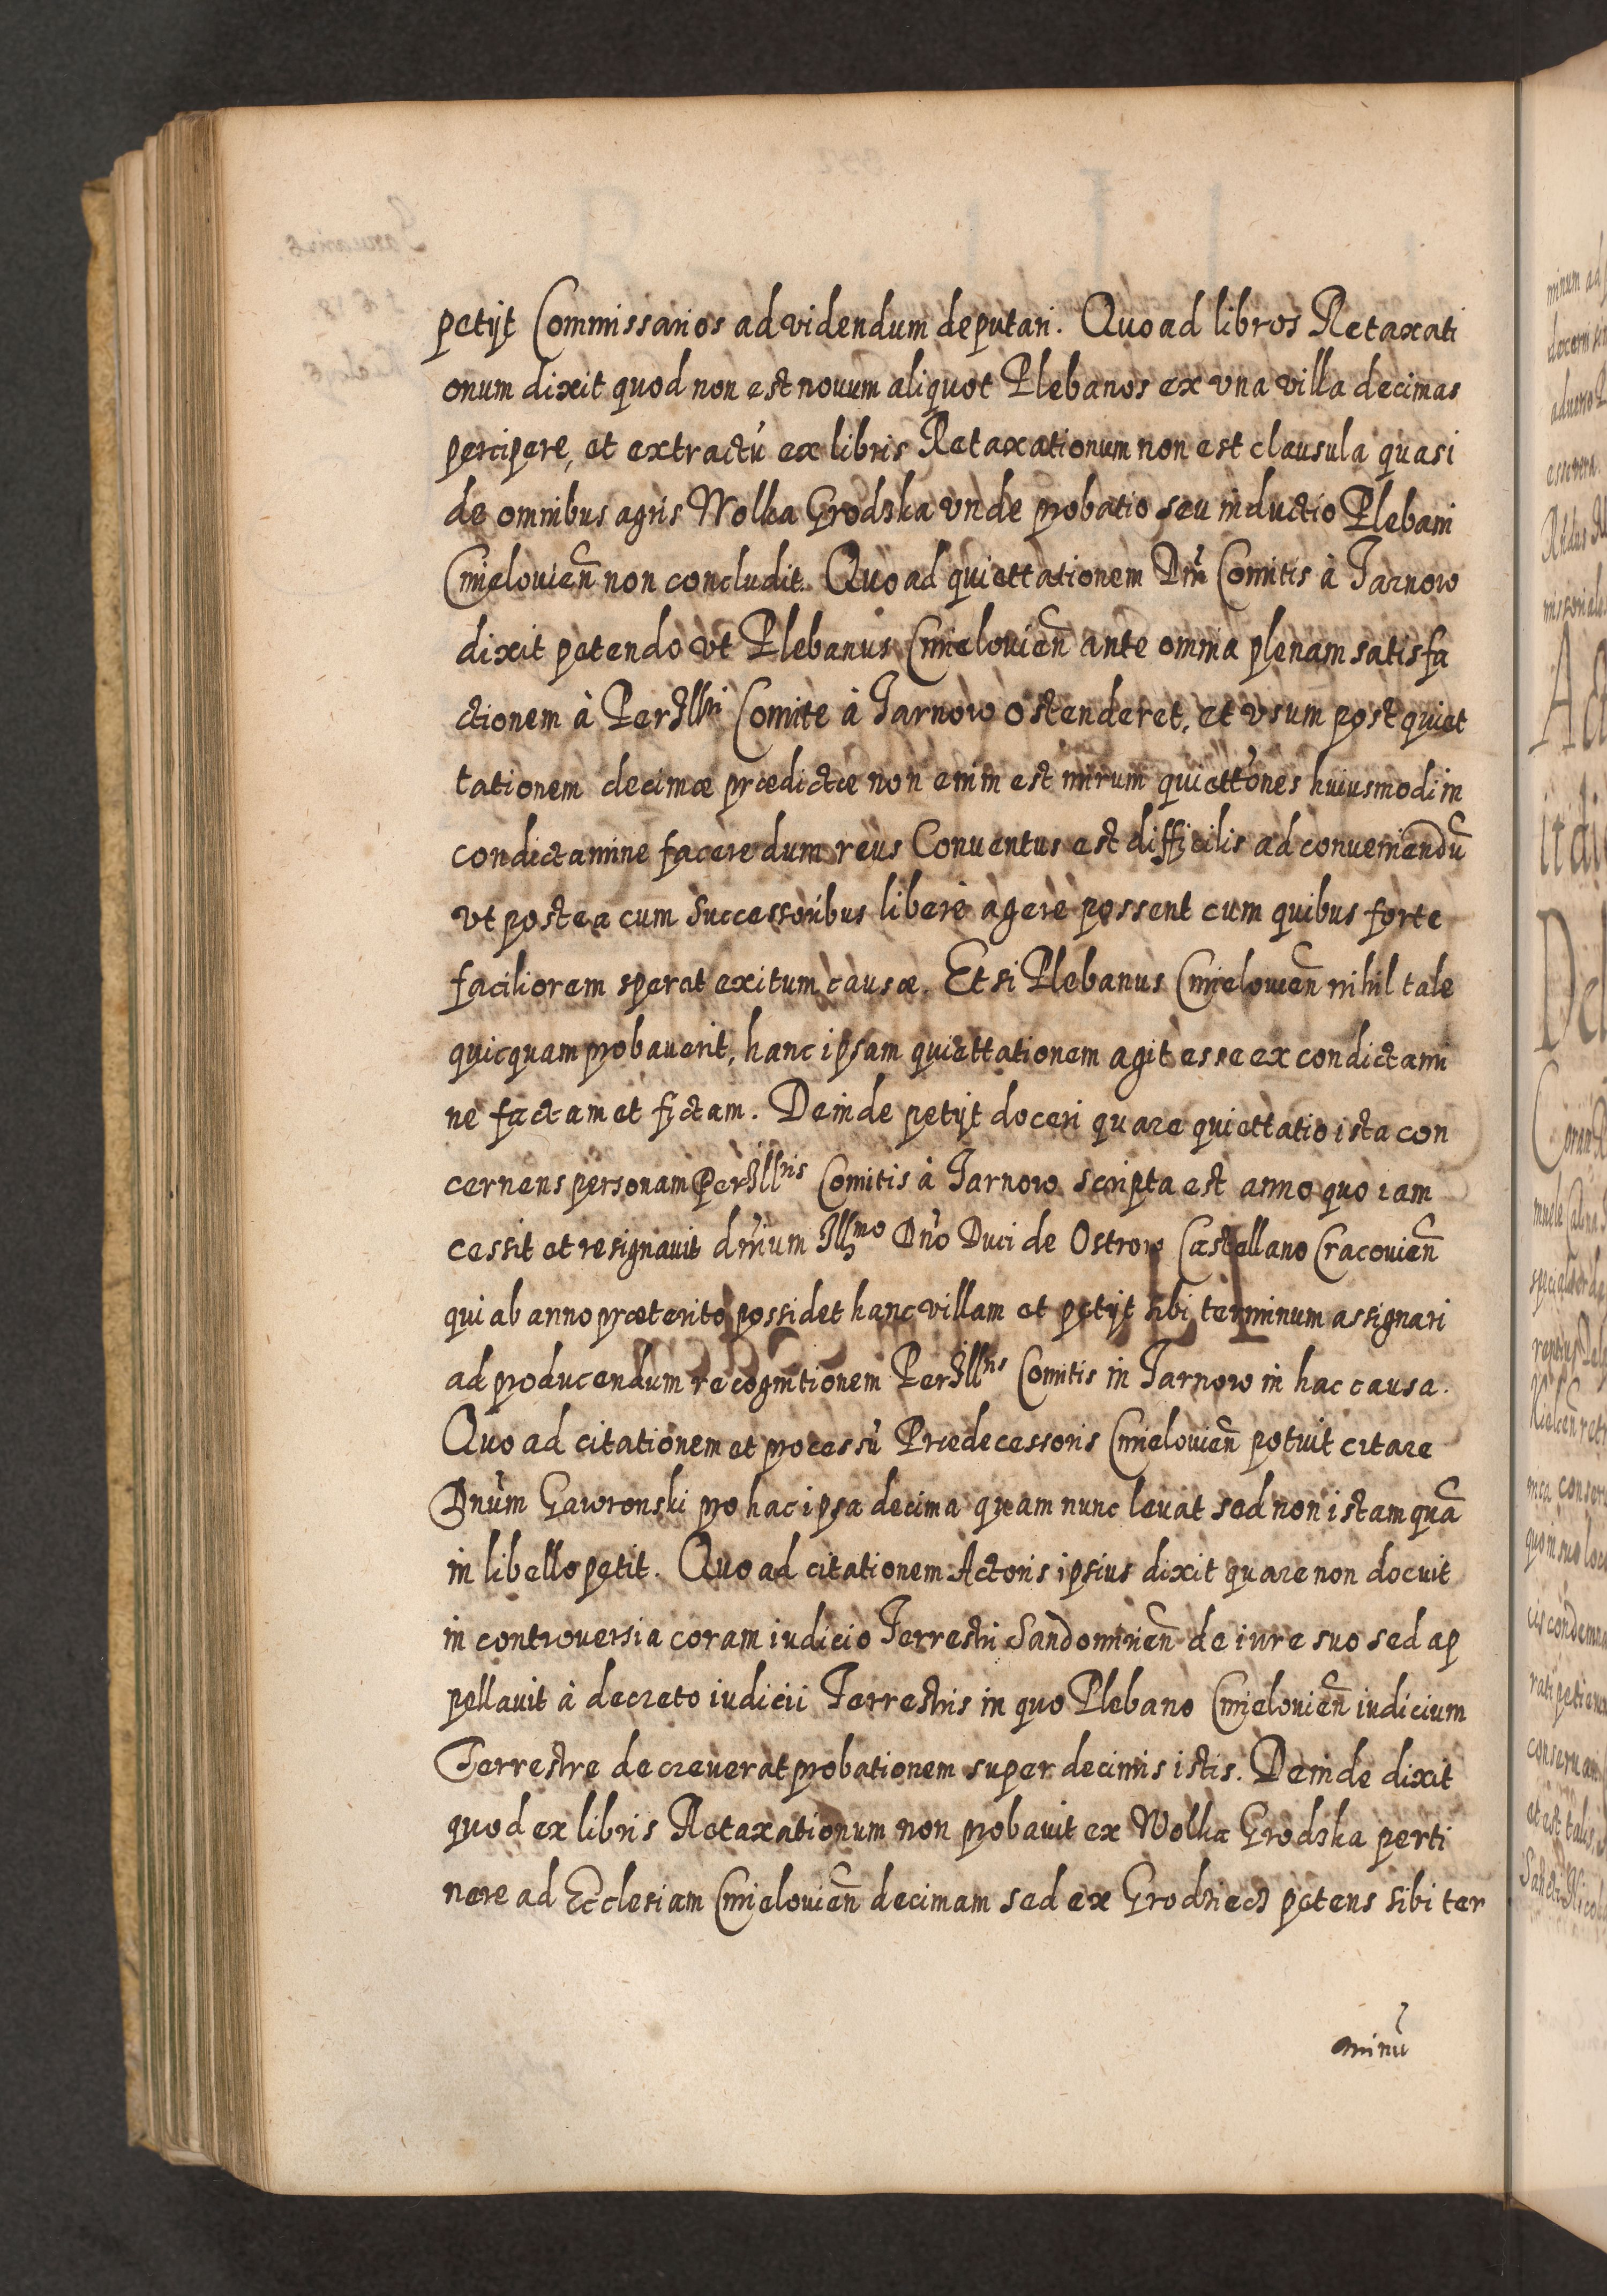 petijt Commissarios ad videndum deputari. Quo ad libros Retaxati
onum dixit quod non est novum aliquot Plebanos ex vna villa decimas
percipere, et extractu ex libris Retaxationum non est clausula quasi
de omnibus agris Wolka Grodzka vnde probatio seu inductio Plebani
Cmielouien̄ non concludit. Quo ad quiettationem Dn̄i Comitis à Tarnow
dixit petendo vt Plebanus Cmielouien̄ ante omnia plenam satisfa
ctionem à PerIllri Comite à Tarnow ostenderet, et vsum post quiet
tationem decimæ prædictæ non enim est mirum quiettōnes huiusmodi in
condictamine facere dum reus Conuentus est difficilis ad conueniendū
vt postea cum Successoribus liberè agere possent cum quibus forte
faciliorem sperat exitum causæ. Et si Plebanus Cmielouien̄ nihil tale
quicquam probauerit, hanc ipsam quiettationem agit esse ex condictami
ne factam et fictam. Deinde petijt doceri quare quiettatio ista con
cernens personam PerIllris Comitis à Tarnow scripta est anno quo iam
cessit et resignauit dn̄ium Illmo Dn̄o Duci de Ostrow Castellano Cracouien̄
qui ab anno præterito possidet hanc villam et petijt sibi terminum assignari
ad producendum recognitionem PerIllris Comitis in Tarnow in hac causa.
Quo ad citationem et processū Prædecessoris Cmielouien̄ potuit citare
Dn̄um Gawronski pro hac ipsa decima quam nunc leuat sed non istam quā
in libello petit. Quo ad citationem Actoris ipsius dixit quare non docuit
in controuersia coram iudicio Terrestri Sandomirien̄ de iure suo sed ap
pellauit à decreto iudicii Terrestris in quo Plebano Cmielouien̄ iudicium
Terrestre decreuerat probationem super decimis istis. Deinde dixit
quod ex libris Retaxationum non probauit ex Wolka Grodzka perti
nere ad Ecclesiam Cmielouien̄ decimam sed ex Grodziecz petens sibi ter
minū